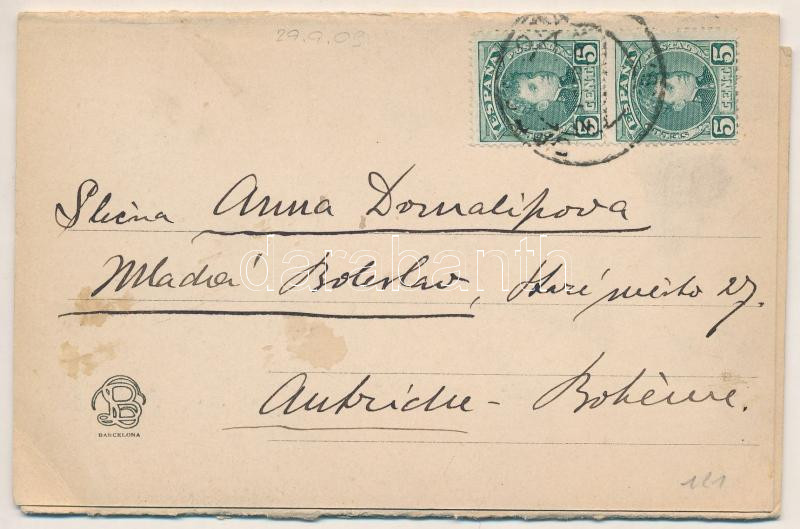 29.9.09
ESPAÑA 5 CENTS
ESPAÑA 5 CENTS
Slečna Anna Domalipova
Mladá Boleslav, Staré město 27.
Autriche – Bohème.
BARCELONA
121
darabanth